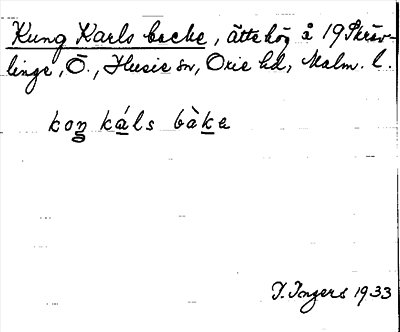 Kung Karls backe, ättehög å 19 Skräv-
linge, Ö., Husie sn, Oxie hd, Malm. l.
koŋ káls bàka
I. Ingers 1933